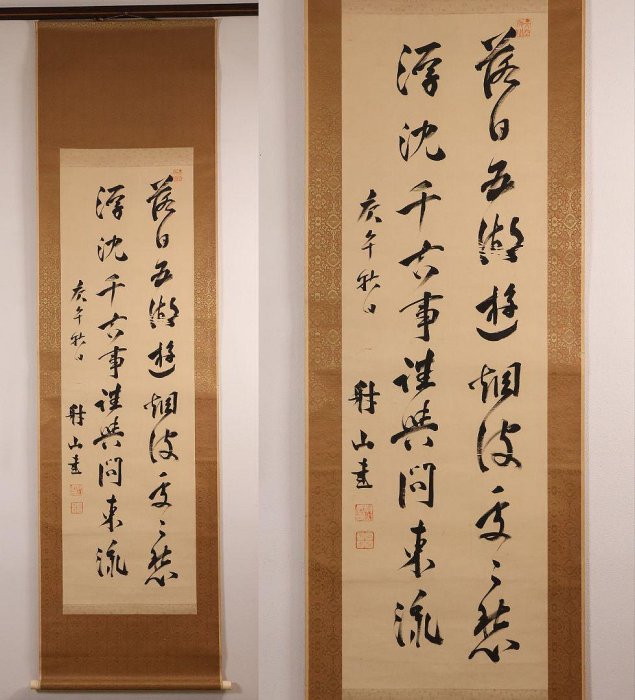 落日五湖遊烟波處々愁
浮沈千古事誰與問東流
庚午秋日
山書
落日五湖遊烟波處々愁
浮沈千古事誰與問東流
庚午秋日
山書